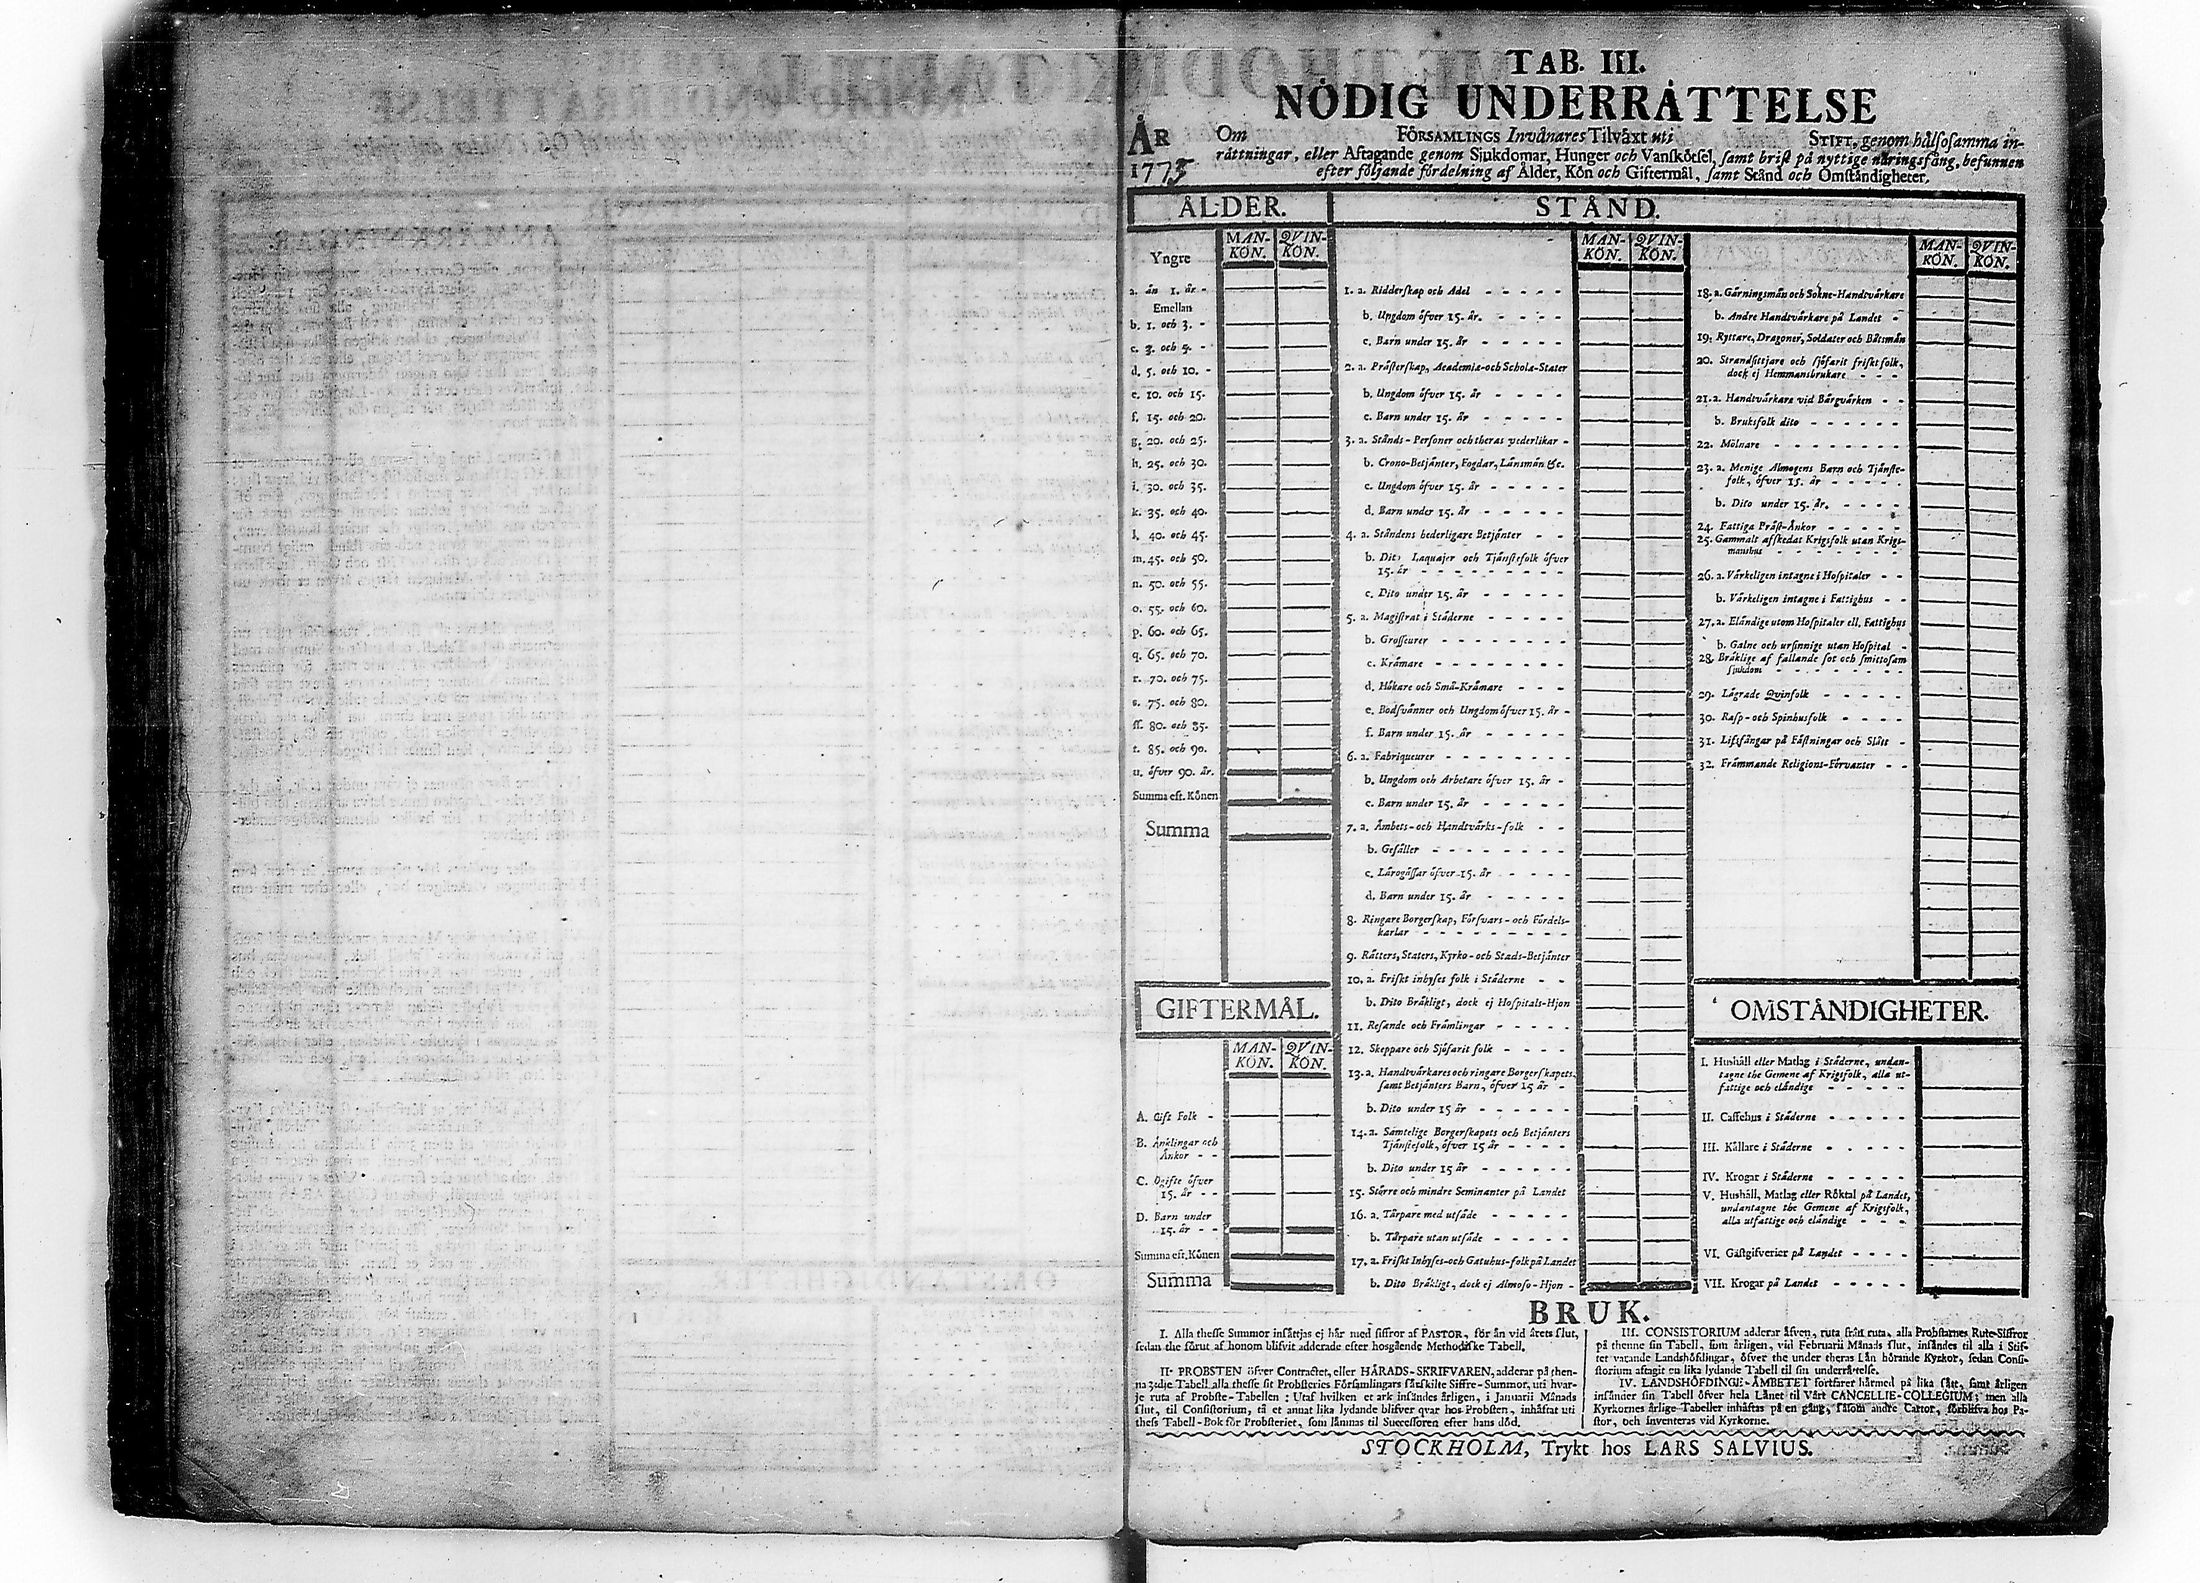 TAB. III.
NÖDIG UNDERRÄTTELSE
ÅR
1775
Om FÖRSAMLINGS Invånares Tilväxt uti STIFT, genom hälsosamma in-
rättningar, eller Aftagande genom Sjukdomar, Hunger och Vanskötsel, samt brist på nyttige näringsfång, befunnen
efter följande fördelning af Ålder, Kön och Giftermål, samt Stånd och Omständigheter.
ÅLDER.
MAN-KÖN. QVIN-KÖN.
Yngre
a. än 1. år -
Emellan
b. 1. och 3. -
c. 3. och 5. -
d. 5. och 10. -
e. 10. och 15.
f. 15. och 20.
g. 20. och 25.
h. 25. och 30.
i. 30. och 35.
k. 35. och 40.
l. 40. och 45.
m. 45. och 50.
n. 50. och 55.
o. 55. och 60.
p. 60. och 65.
q. 65. och 70.
r. 70. och 75.
s. 75. och 80.
ff. 80. och 85.
t. 85. och 90.
u. öfver 90. år.
Summa eft. Könen
Summa
GIFTERMÅL.
MAN-KÖN. QVIN-KÖN.
A. Gift Folk -
B. Änklingar och
Änkor - -
C. Ogifte öfver
15. år - -
D. Barn under
15. år - -
Summa eft. Könen
Summa
STÅND.
MAN-KÖN. QVIN-KÖN.
1. a. Ridderskap och Adel - - - - -
b. Ungdom öfver 15. år. - - - -
c. Barn under 15. år - - - - -
2. a. Prästerskap, Academiæ-och Scholæ-Stater
b. Ungdom öfver 15. år - - - -
c. Barn under 15. år - - - - -
3. a. Stånds-Personer och theras vederlikar -
b. Crono-Betjänter, Fogdar, Länsmän &c.
c. Ungdom öfver 15. år - - - - -
d. Barn under 15. år - - - - -
4. a. Ståndens hederligare Betjänter - -
b. Dito Laquajer och Tjänstefolk öfver
15. år - - - - - - - - -
c. Dito under 15. år - - - - -
5. a. Magistrat i Städerne - - - - -
b. Grosseurer - - - - - - -
c. Krämare - - - - - - - -
d. Hökare och Små-Krämare - - -
e. Bodsvänner och Ungdom öfver 15. år -
f. Barn under 15. år - - - - -
6. a. Fabriqueurer - - - - - - -
b. Ungdom och Arbetare öfver 15. år -
c. Barn under 15. år - - - - -
7. a. Ämbets-och Handtvärks-folk - -
b. Gesäller - - - - - - - -
c. Lärogåssar öfver 15. år - - - -
d. Barn under 15. år - - - - -
8. Ringare Borgerskap, Försvars-och Fördels-
karlar - - - - - - - - -
9. Rätters, Staters, Kyrko-och Stads-Betjänter
10. a. Friskt inhyses folk i Städerne - -
b. Dito Bräkligt, dock ej Hospitals-Hjon
11. Resande och Främlingar - - - - -
12. Skeppare och Sjöfarit folk - - - -
13. a. Handtvärkares och ringare Borgerskapets,
samt Betjänters Barn, öfver 15 år -
b. Dito under 15 år - - - - - -
14. a. Samtelige Borgerskapets och Betjänters
Tjänstefolk, öfver 15 år - - - -
b. Dito under 15 år - - - - - -
15. Större och mindre Seminanter på Landet
16. a. Tårpare med utsäde - - - - -
b. Tårpare utan utsäde - - - - -
17. a. Friskt Inhyses-och Gatuhus-folk på Landet
b. Dito Bräkligt, dock ej Almoso-Hjon -
MAN-KÖN. QVIN-KÖN.
18. a. Gärningsmän och Sokne-Handtvärkare
b. Andre Handtvärkare på Landet -
19. Ryttare, Dragoner, Soldater och Båtsmän
20. Strandsittjare och sjöfarit friskt folk,
dock ej Hemmansbrukare - - -
21. a. Handtvärkare vid Bärgvärken - -
b. Bruksfolk dito - - - - - -
22. Mölnare - - - - - - - -
23. a. Menige Almogens Barn och Tjänste-
folk, öfver 15. år - - - - -
b. Dito under 15. år. - - - - -
24. Fattiga Präst-Änkor - - - - -
25. Gammalt afskedat Krigsfolk utan Krigs-
manshus - - - - - - - -
26. a. Värkeligen intagne i Hospitaler - -
b. Värkeligen intagne i Fattighus - -
27. a. Eländige utom Hospitaler ell. Fattighus
b. Galne och ursinnige utan Hospital -
28. Bräklige af fallande sot och smittosam
sjukdom - - - - - - - -
29. Lägrade Qvinfolk - - - - -
30. Rasp-och Spinhusfolk - - - -
31. Lifsfångar på Fästningar och Slått -
32. Främmande Religions-Förvanter - -
OMSTÄNDIGHETER.
I. Hushåll eller Matlag i Städerne, undan-
tagne the Gemene af Krigsfolk, alla ut-
fattige och eländige - - - - -
II. Caffehus i Städerne - - - - -
III. Källare i Städerne - - - - -
IV. Krogar i Städerne - - - - -
V. Hushåll, Matlag eller Röktal på Landet,
undantagne the Gemene af Krigsfolk,
alla utfattige och eländige - - -
VI. Gästgifverier på Landet - - - -
VII. Krogar på Landet - - - - -
BRUK.
I. Alla thesse Summor insättjas ej här med siffror af PASTOR, för än vid årets slut,
sedan the förut af honom blifvit adderade efter hosgående Methodiske Tabell.
II. PROBSTEN öfver Contractet, eller HÄRADS-SKRIFVAREN, adderar på then-
na 3:dje Tabell alla thesse sit Probsteries Församlingars särskilte Siffre-Summor, uti hvar-
je ruta af Probste-Tabellen: Utaf hvilken et ark insändes årligen, i Januarii Månads
slut, til Consistorium, tå et annat lika lydande blifver qvar hos Probsten, inhäftat uti
thess Tabell-Bok för Probsteriet, som lämnas til Successoren efter hans död.
III. CONSISTORIUM adderar äfven, ruta från ruta, alla Probstarnes Rute-Siffror
på thenne sin Tabell, som årligen, vid Februarii Månads slut, insändes til alla i Stif-
tet varande Landshöfdingar, öfver the under theras Län hörande Kyrkor, sedan Consi-
storium aftagit en lika lydande Tabell til sin underrättelse.
IV. LANDSHÖFDINGE-ÄMBETET fortfaret härmed på lika sätt, samt årligen
insänder sin Tabell öfver hela Länet til Vårt CANCELLIE-COLLEGIUM; men alla
Kyrkornes årlige Tabeller inhäftas på en gång, såsom andre Cartor, förblifva hos Pa-
stor, och inventeras vid Kyrkorne.
STOCKHOLM, Trykt hos LARS SALVIUS.